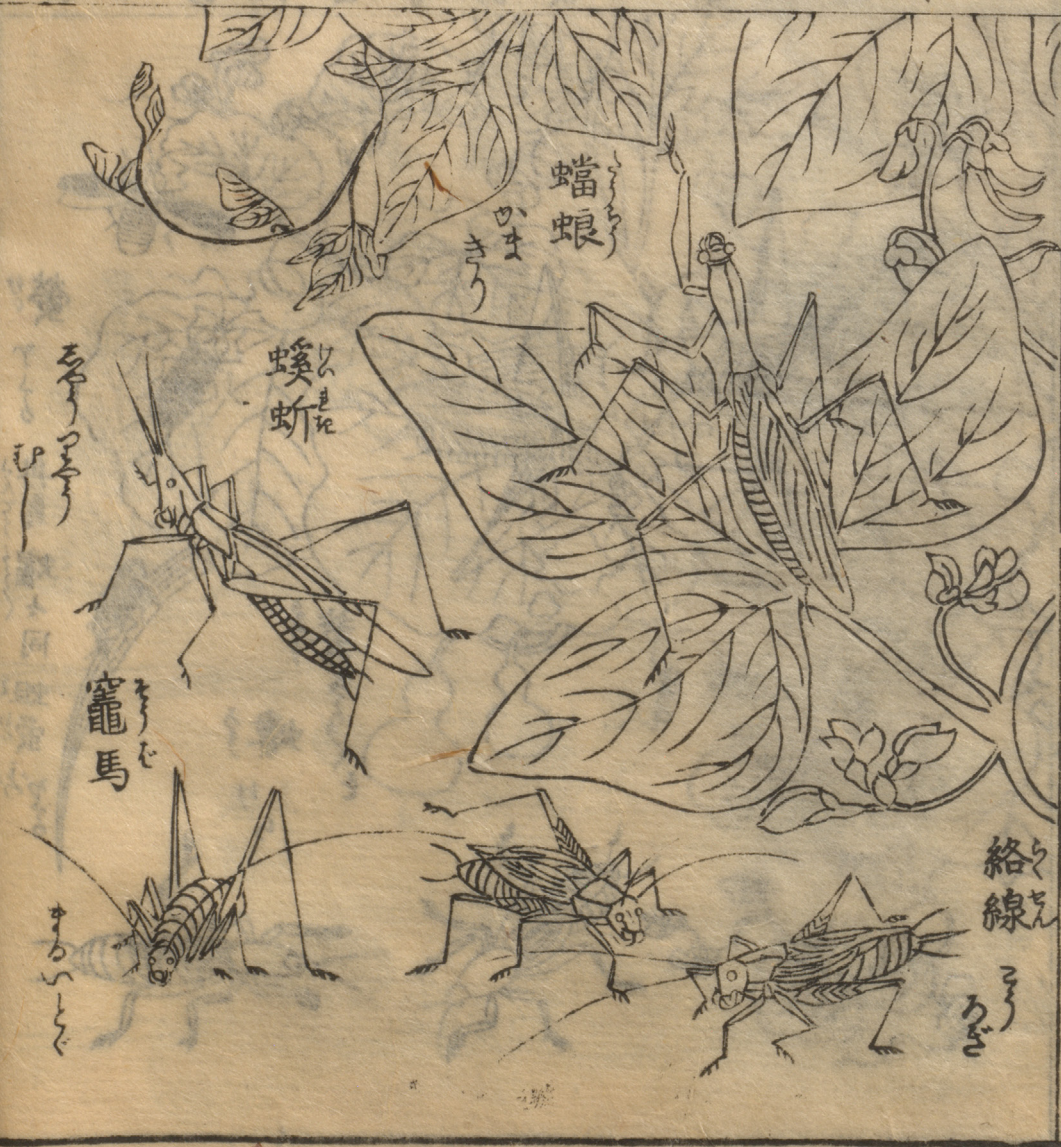 蟷蜋
たうらう
かま
きり
螇蚸
けいれき
しやうりやう
むし
竈馬
さうば
まるいとゞ
絡線
らくせん
こうろぎ